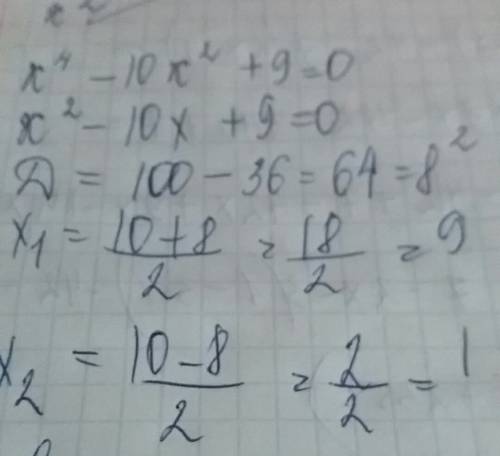 x⁴ − 10x² + 9 = 0
x² − 10x + 9 = 0
D = 100 − 36 = 64 = 8²
x₁ = (10+8)/2 = 18/2 = 9
x₂ = (10−8)/2 = 2/2 = 1